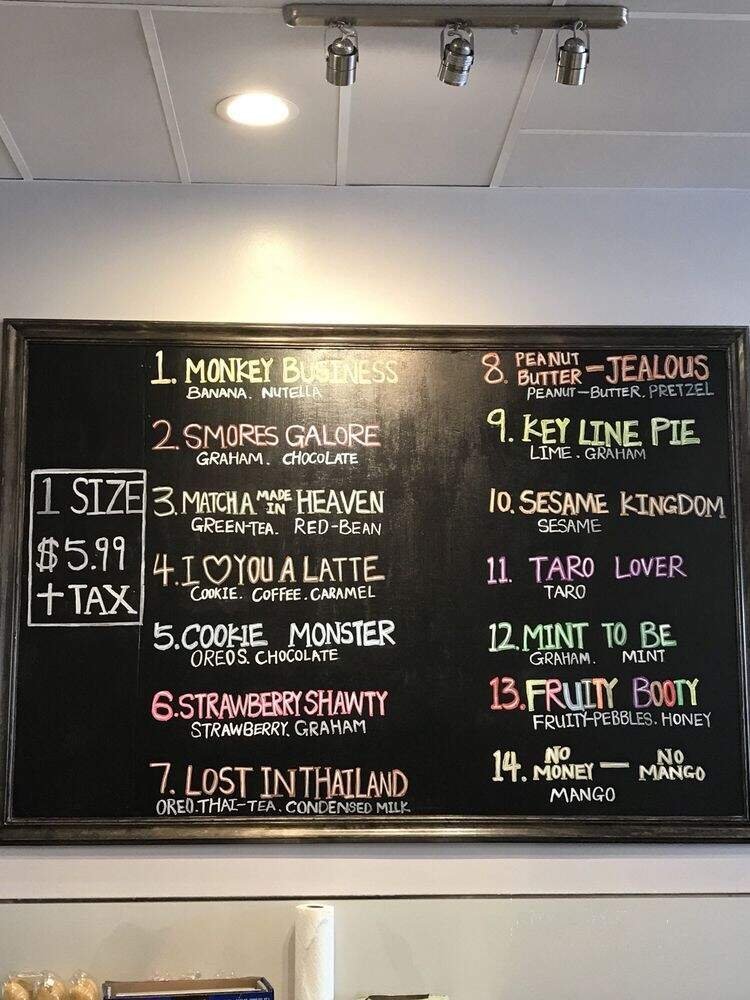 1 SIZE
$5.99
+ TAX
1. MONKEY BUSINESS
BANANA. NUTELLA
2. SMORES GALORE
GRAHAM. CHOCOLATE
3. MATCHA MADE IN HEAVEN
GREEN-TEA. RED-BEAN
4. I ♡ YOU A LATTE
COOKIE. COFFEE. CARAMEL
5. COOKIE MONSTER
OREOS. CHOCOLATE
6. STRAWBERRY SHAWTY
STRAWBERRY. GRAHAM
7. LOST IN THAILAND
OREO. THAI-TEA. CONDENSED MILK
8. PEANUT BUTTER - JEALOUS
PEANUT-BUTTER. PRETZEL
9. KEY LINE PIE
LIME. GRAHAM
10. SESAME KINGDOM
SESAME
11. TARO LOVER
TARO
12. MINT TO BE
GRAHAM. MINT
13. FRUITY BOOTY
FRUITY-PEBBLES. HONEY
14. NO MONEY — NO MANGO
MANGO